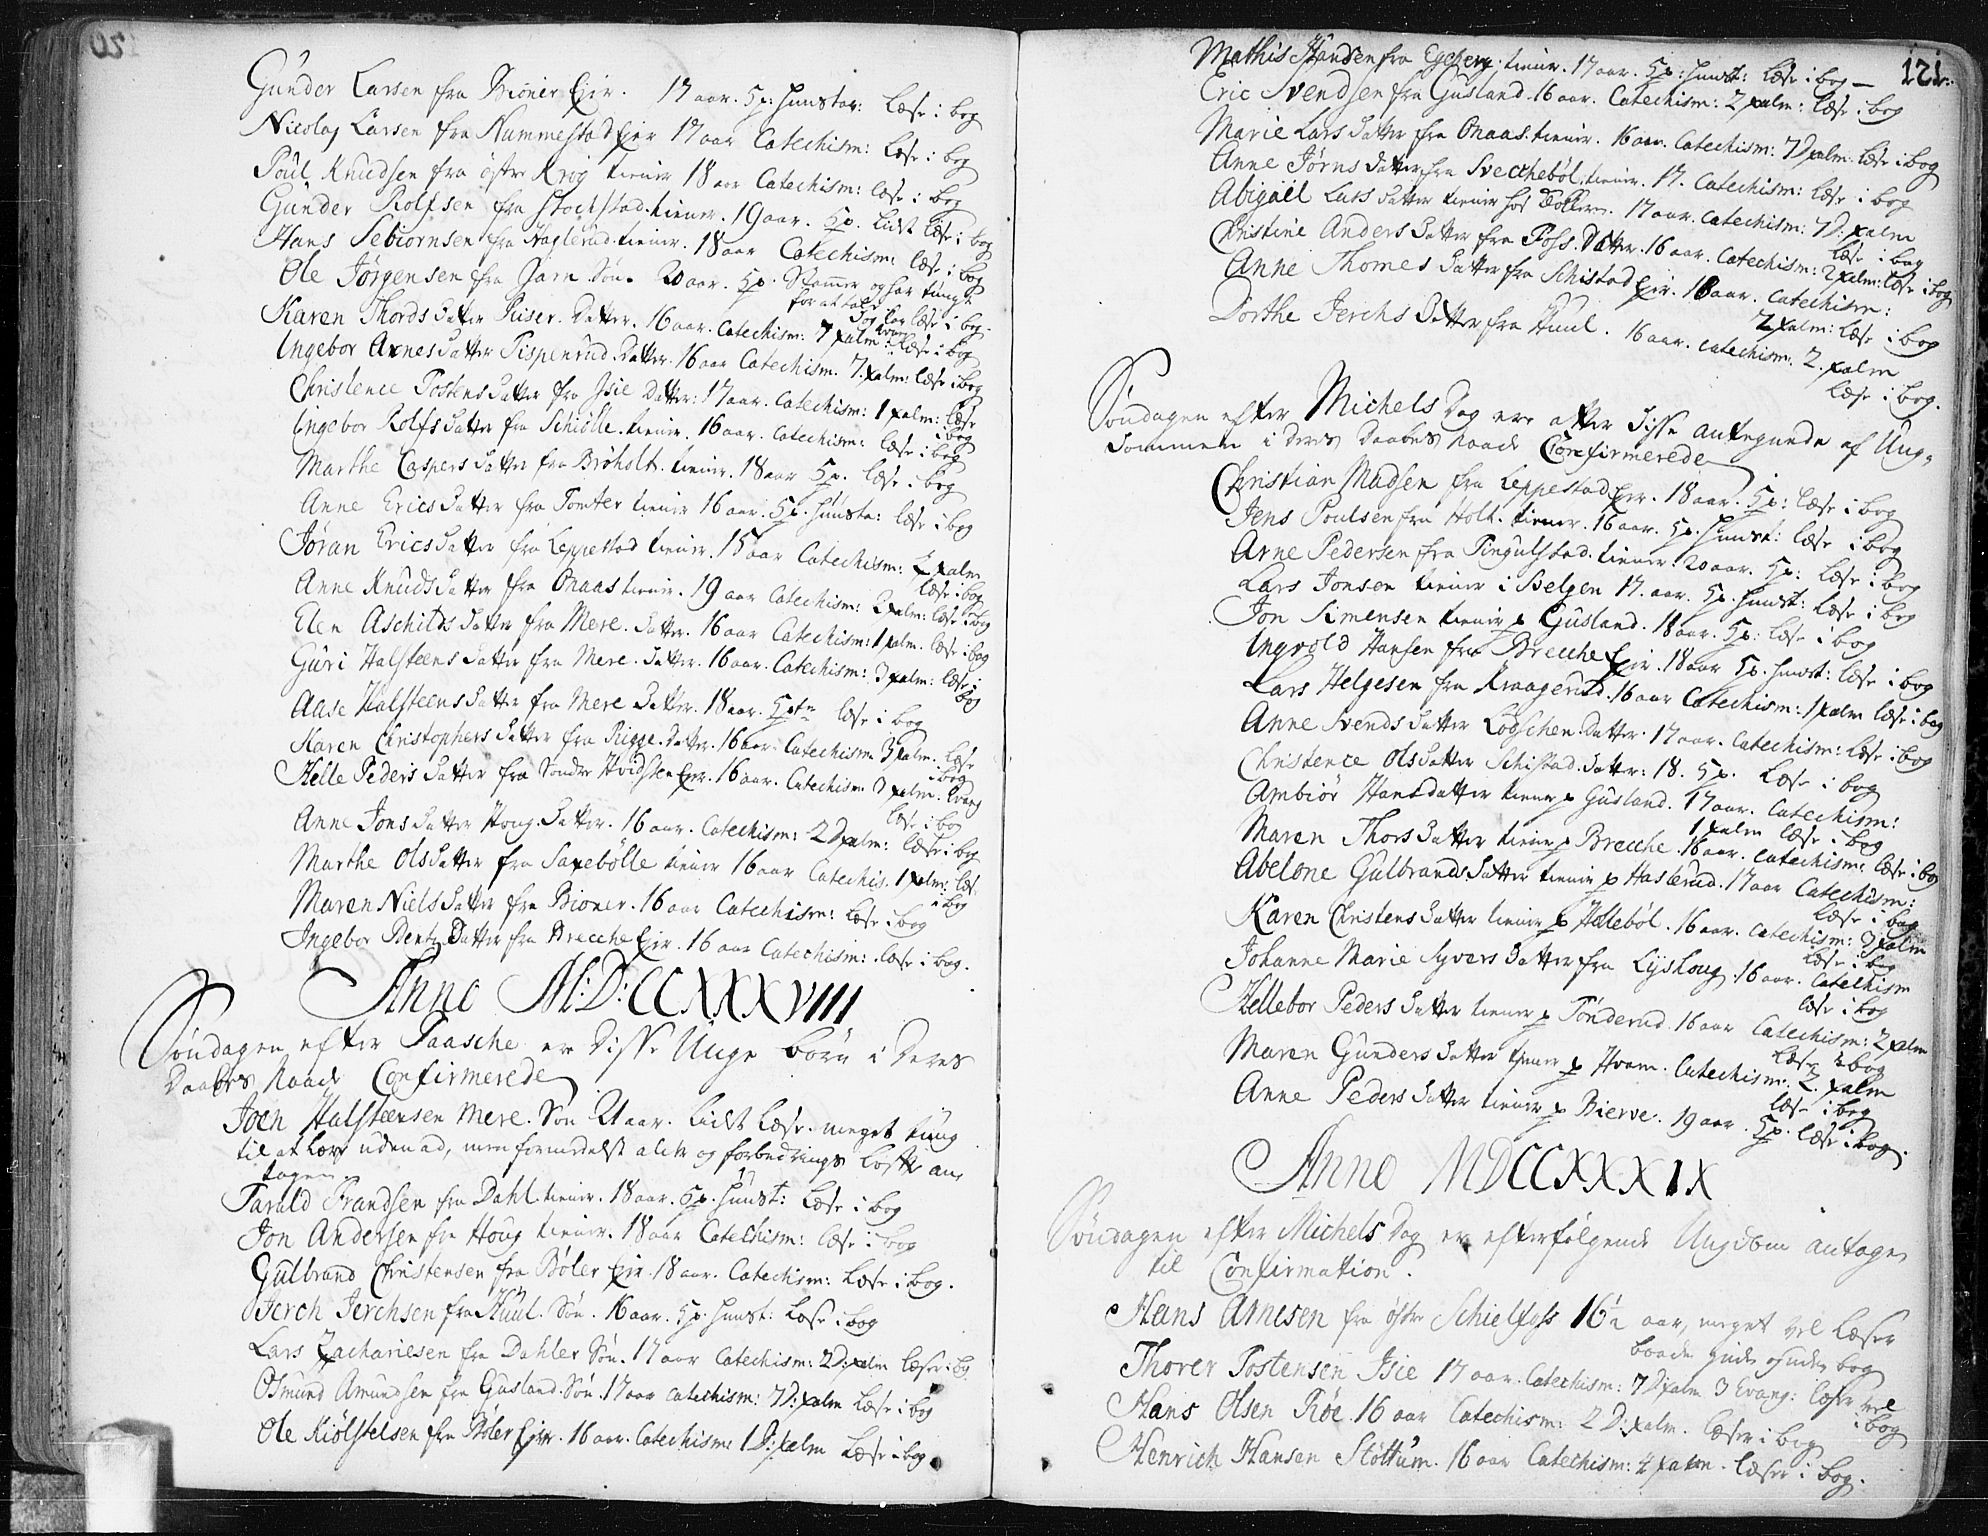 Gunder Larsen fra Bioner Ejr. 17 aar. 5p: hunstav: læse i bog
Nicolaj Larsen fra Nummestad Ejr 17 aar Catechism: læse i bog
Poul Knudsen fra østre Krog tiener 18 aar Catechism: læse i bog
Gunder Rolfsen fra Stochstad. tiener. 19 aar. 5p. lidt læse i bog
Hans Sebiornsen fra Haglerud. tiener. 18 aar Catechism: læse i bog
Ole Jørgensen fra Garn Søn. 20 aar. 5p. Stammer og har tungt
for at tale
dog kan læse i bog.
Karen Thords Datter Riiser. Datter. 16 aar. Catechism: 7 psalm: læse i bog
Ingebor Arnes Datter Tispenrud. Datter. 16 aar Catechism. 7. psalm: læse i bog
Christence Tostens Datter fra Isie Datter: 17 aar. Catechism: 1 psalm: læse
i bog
Ingebor Rolfs Datter fra Schiølle. tiener. 16 aar. Catechism: læse i bog
Marthe Caspers Datter fra Brøholt. tiener. 18 aar 5p. læse i bog
Anne Erics Datter fra Tomter tiener 16 aar. 5p. hunsta: læse i bog
Jøran Erics Datter fra Leppestad tiener. 15 aar Catechism: 2 psalm
læse i bog
Anne Knuds Datter fra Onaas tiener. 19 aar Catechism: 2 psalm: læse i bog
Elen Aschilds Datter fra Mere. Datter. 16 aar Catechism: 1 psalm. læse i bog
Guri Halsteens Datter fra Mere. Datter. 16 aar. Catechism: 3 psalm: læse i
bog
Aase Halsteens Datter fra Mere Datter. 18 aar. 5 ptr læse i bog
Karen Christophers Datter fra Rigge. Datter. 16 aar. Catechism 3 psalm. læse
i bog
Helle Peders Datter fra Søndre Hvidsteen Ejr. 16 aar. Catechism 3 psalm. Evang
læse i bog
Anne Jons Datter Houg. Datter. 16 aar. Catechism: 2 D psalm: læse i bog
Marthe Ols Datter fra Saxebølle tiener 16 aar Catechis. 1 psalm: læse
i bog
Maren Niels Datter fra Bioner. 16 aar Catechism: læse i bog
Ingebor Bents Datter fra Brecche Ejr. 16 aar Catechism: læse i bog.
Anno M:D:CCXXXVIII
Søndagen efter Paasche ere disse Unge børn i deres
Daabes Naade Confirmerede
Joen Halsteensen Mere. Søn 21 aar. lidt læse. meget tung
til at lære udenad, men formedelst alder og forbedrings løfte an,
tagen
Tarald Frandsen fra Dahl tiener. 18 aar. 5p. hunst: læse i bog
Jon Andersen fra Houg tiener. 18 aar Catechism: læse i bog
Gulbrand Christensen fra Bøler Ejr. 18 aar. Catechism: læse i bog.
Jerch Jerchsen fra Huul. Søn. 16 aar. 5p. hunst: læse i bog
Lars Zachariesen fra Dahler Søn. 17 aar Catechism: 2 D: psalm læse i b.
Osmund Amundsen fra Gusland. Søn. 17 aar catechism: 7 D: psalm læse i bog
Ole Kiølstelsen fra Bøler Ejr. 16 aar. Catechism: 1 D: psalm læse i bog.
121.
Mathis Hansen fra Egeberg. tiener. 17 aar. 5p: hunst: læse i bog
Eric Svendsen fra Gusland. 16 aar. Catechism: 2 psalm: læse i bog
Marie Lars Datter fra Onaas. tiener. 16 aar. Catechism: 7 D psalm. læse i bog
Anne Jørns Datter fra Svecchebøl. tiener. 17. Catechism: læse i bog
Abigaël Lars Datter tiener hos 17 aar. Catechism: 7 D: psalm
læse i bog
Christine Anders Datter fra Foss. Datter. 16 aar. Catechism: 2 psalm: læse i bog
Anne Thomes Datter fra Schistad Ejr. 18 aar. Catechism:
2 psalm: læse i bog
Dorthe Jerchs Datter fra Huul. 16 aar. catechism. 2. psalm
læse i bog.
Søndagen efter Michels Dag ere atter disse antegnede af Ung,
dommen i deres Daabes Naade Confirmerede
Christian Madsen fra Leppestad Ejr. 18 aar. 5p: læse i bog
Jens Poulsen fra Holt. tiener. 16 aar. 5p. hunst: læse i bog
Arne Pedersen fra Tingulstad. tiener. 20 aar. 5p: læse i bog
Lars Jonsen tiener i Belgen 17. aar. 5p. hunst: læse i bog
Jon Simensen tiener p Gusland. 18 aar. 5p: læse i bog
Ingvold Hansen fra Brecche Ejr. 18 aar 5p. hunst: læse i bog
Lars Helgesen fra Kraagerud. 16 aar Catechism: 1 psalm læse i bog
Anne Svends Datter Lodschen. Datter. 17 aar. Catechism: læse i bog
Christence Ols Datter Schistad. Datter: 18. 5p. læse i bog
Ambiør Hansdatter tiener p Gusland. 17 aar. Catechism:
1 psalm læse i bog
Maren Thors Datter tiener p Brecche. 16 aar. Catechism: læse i bog
Abelone Gulbrands Datter tiener p Haslerud. 17 aar Catechism:
læse i bog
Karen Christens Datter tiener p Hallebøl. 16 aar. Catechism: 3 psalm
læse i bog
Johanne Marie Syvers Datter fra Lyshoug. 16 aar. Catechism
læse i bog
Hellebor Peders Datter tiener p Tønderud. 16 aar Catechism: 2 psalm
læse i bog
Maren Gunders Datter tiener p Hvam. Catechism: 2. psalm
læse i bog
Anne Peders Datter tiener p Bierve. 19 aar. 5p. læse i bog.
Anno MDCCXXXIX
Søndagen efter Michels Dag er efterfølgende Ungdom antagen
til Confirmation.
Hans Arnesen fra østre Schielfoss 16½ aar, meget vel læser
baade inden og uden bog
Thorer Tostensen Isie 17 aar. Catechism: 7 D psalm 3 Evang: læser vel
i bog
Hans Olsen Røe. 16 aar Catechism: 2 D: psalm. læser i bog
Henrich Hansen Støttum. 16 aar Catechism: 4 psalm. læser i bog.